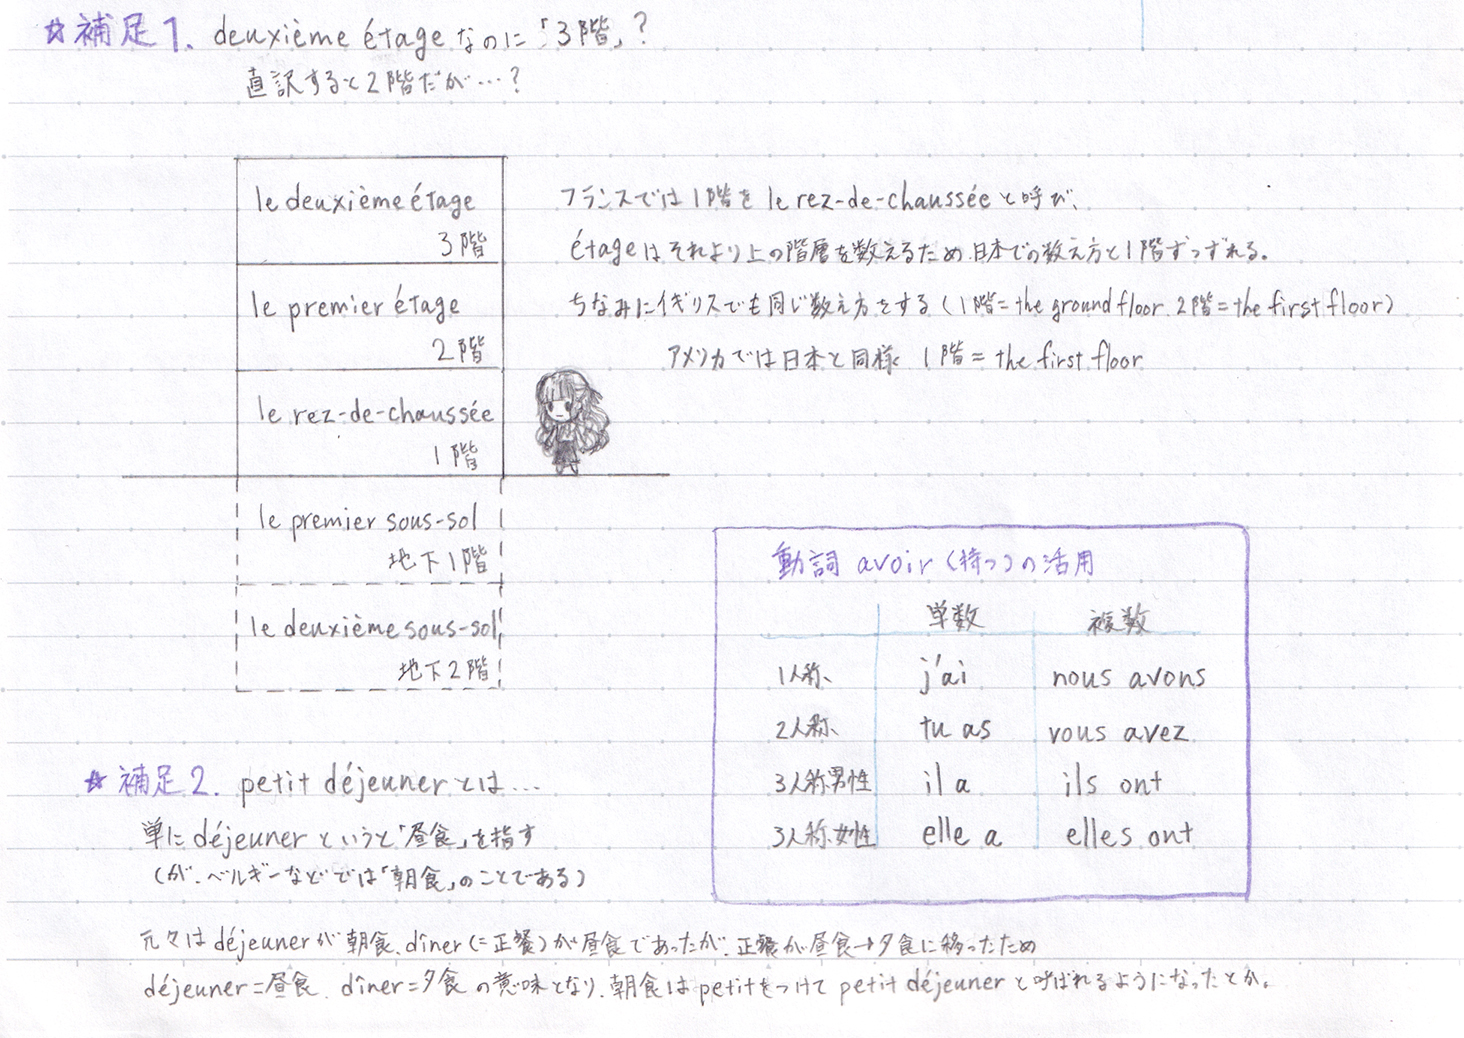 ☆補足1. deuxième étageなのに「3階」?
直訳すると2階だが…?
le deuxième étage
3階
le premier étage
2階
le rez-de-chaussée
1階
le premier sous-sol
地下1階
le deuxième sous-sol
地下2階
フランスでは1階を le rez-de-chaussée と呼び、
étageはそれより上の階層を数えるため、日本での数え方と1階ずつずれる。
ちなみにイギリスでも同じ数え方をする(1階=the ground floor, 2階=the first floor)
アメリカでは日本と同様 1階=the first floor
動詞 avoir(持つ)の活用
単数 複数
1人称 j'ai nous avons
2人称 tu as vous avez
3人称男性 il a ils ont
3人称女性 elle a elles ont
☆補足2. petit déjeunerとは…
単にdéjeunerというと「昼食」を指す
(が、ベルギーなどでは「朝食」のことである)
元々はdéjeunerが朝食、dîner(=正餐)が昼食であったが、正餐が昼食→夕食に移ったため
déjeuner=昼食、dîner=夕食の意味となり、朝食はpetitをつけてpetit déjeunerと呼ばれるようになったとか。